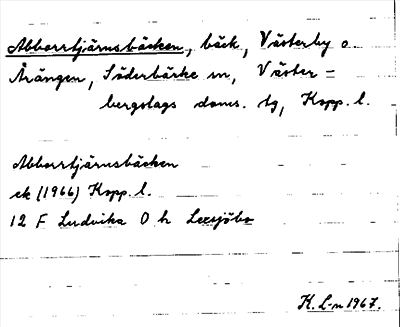 Abborrtjärnsbäcken, bäck, Västerby o.
Årängen, Söderbärke sn, Väster-
bergslags doms. tg, Kopp. l.
Abborrtjärnsbäcken
ek (1966) Kopp. l.
12 F Ludvika 0 h Lersjöbo
K. L-n 1967.